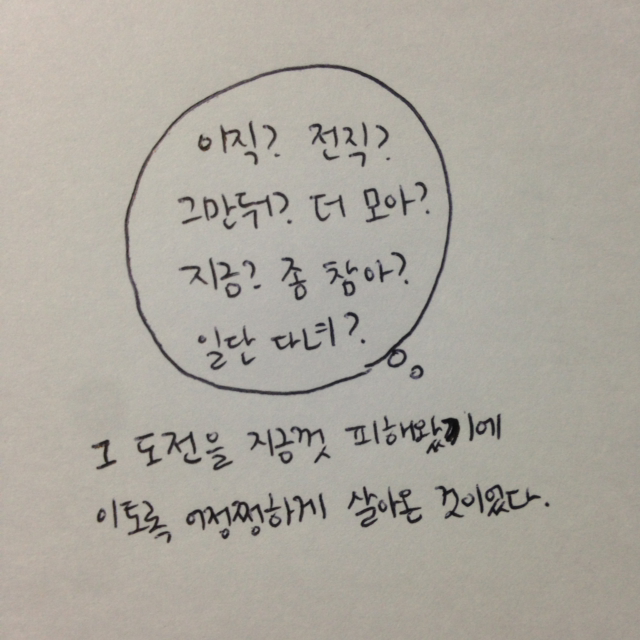 이직? 전직?
그만둬? 더 모아?
지금? 좀 참아?
일단 다녀?
그 도전을 지금껏 피해왔기에
이토록 어정쩡하게 살아온 것이었다.